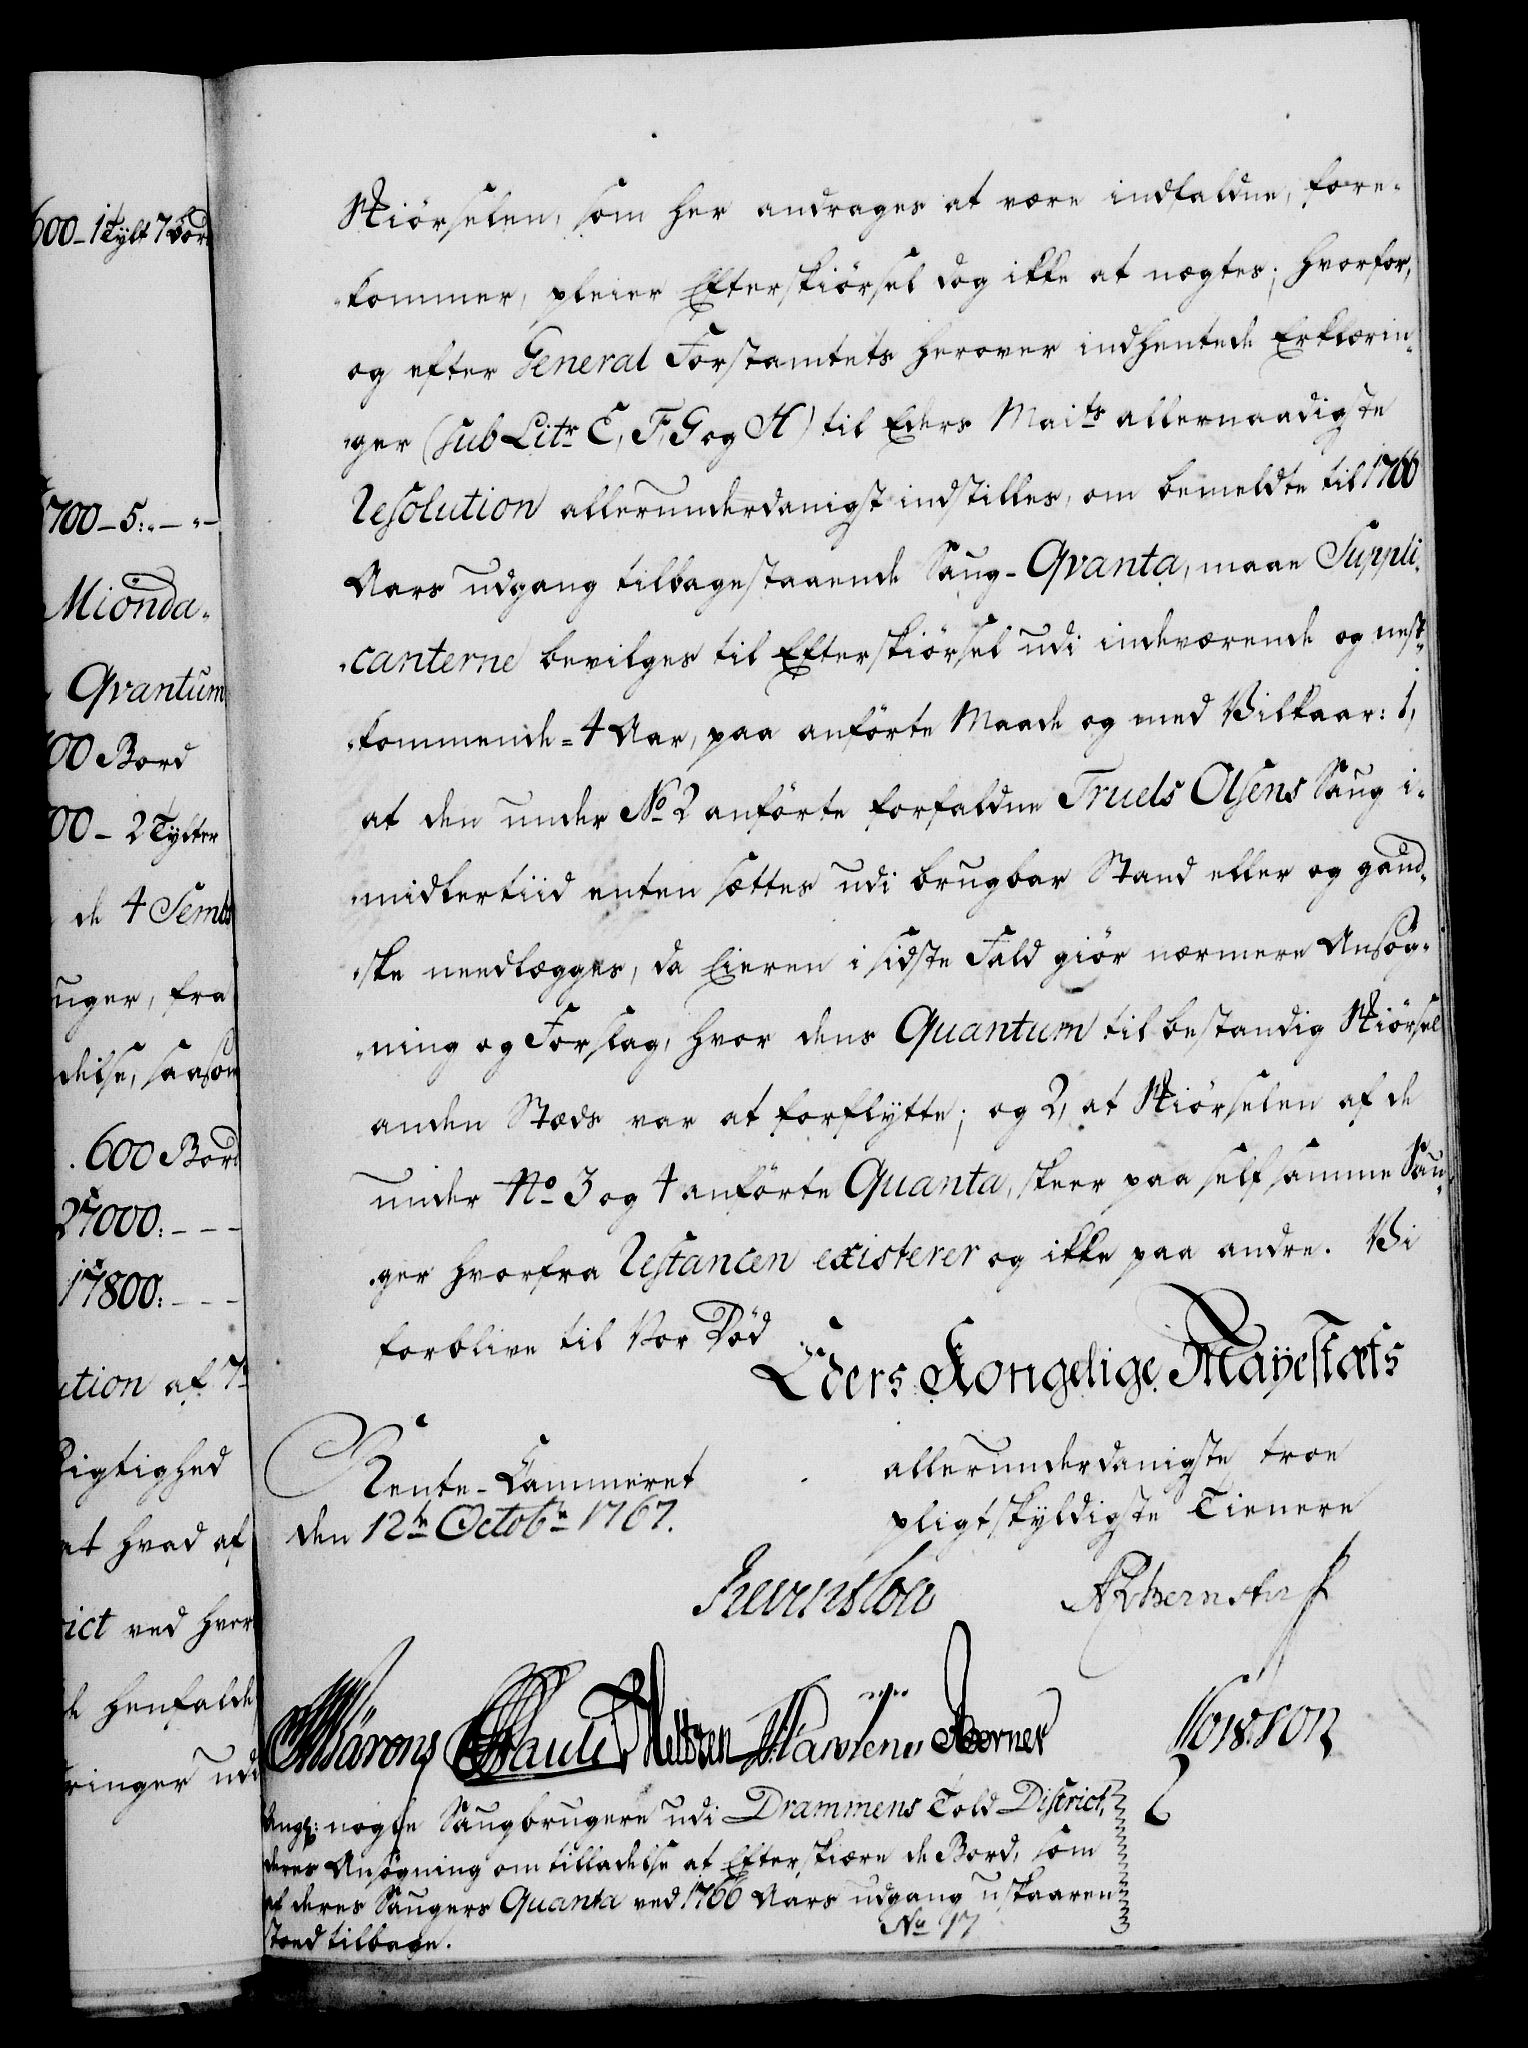 600 - 1 Tylt 7 Bord
1700 - 5: " - " -
Miönda-
Qvantum
00 Bord
00 - 2 Tylter
de 4 Sembs
uger, fra
delse, saasom
. 600 Bord
27000: - - -
17800: - - -
ution af 7de
Rigtighed
at hvad af
rict ved hver
de henfalde
ringer udi
Skiörselen, som her andrages at være indfaldne, fore-
kommer, pleier Efterskiörsel dog ikke at nægtes; hvorfor,
og efter General Forstamtets herover indhentede Erklærin-
ger (sub Litr. E, F, G og H) til Eders Maits allernaadigste
Resolution allerunderdanigst indstilles, om bemeldte til 1766
Aars udgang tilbagestaaende Saug-Qvanta, maae Suppli-
canterne bevilges til Efterskiörsel udi indeværende og nest-
kommende = 4 Aar, paa anförte Maade og med Vilkaar: 1,
at den under No 2 anförte forfaldne Truels Olsens Saug i-
midlertiid enten sættes udi brugbar Stand eller og gand-
ske needlægges, da Eieren i sidste Fald giör nærmere Ansög-
ning og Forslag, hvor dens Quantum til bestandig Skiörsel
anden Stæds var at forflÿtte; og 2, at Skiörselen af de
under No 3 og 4 anförte Quanta, skeer paa self samme Sau-
ger hvorfra Restancen existerer og ikke paa andre. Vi
forblive til Vor Död
Eders Kongelige Mayestæts
Rente-Cammeret
den 12te Octobr 1767.
allerunderdanigste troe
pligtskÿldigste Tienere
Reventlow ABernstorff
Angl: nogle Saugbrugere udi Drammens Told District,
deres Ansögning om tilladelse at Efterskiære de Bord, som
af deres Saugers Quanta ved 1766 Aars udgang uskaaren
stoed tilbage.
No 77